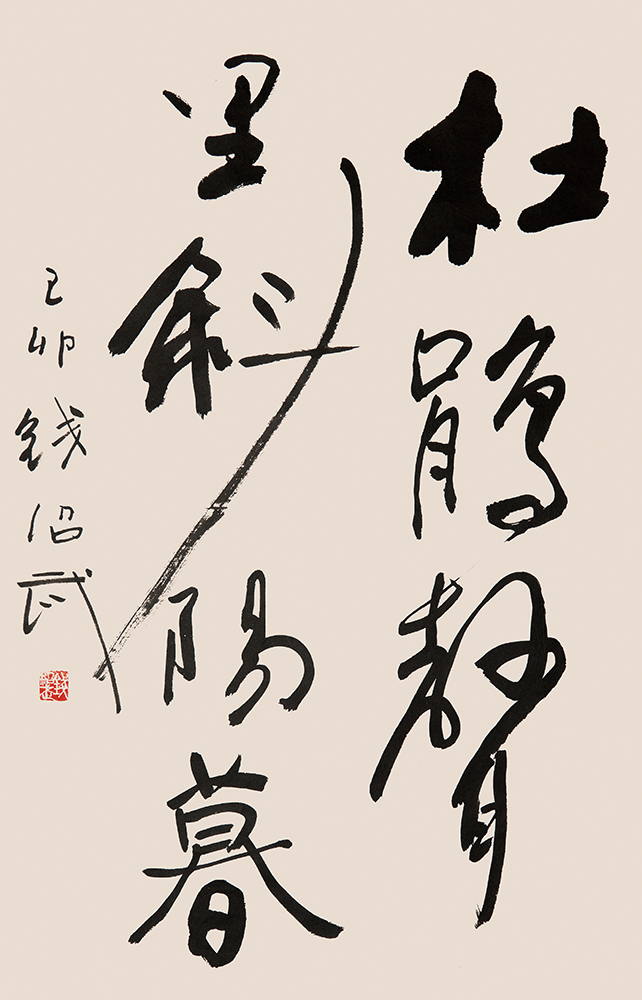 杜鹃聲
里斜陽暮
己卯钱绍武